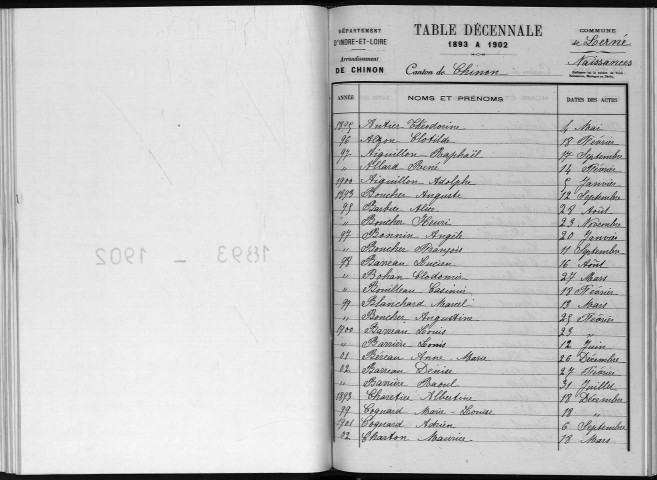 1893 – 1902
DÉPARTEMENT
D'INDRE-ET-LOIRE
Arrondissement
DE CHINON
TABLE DÉCENNALE
1893 A 1902
Canton de Chinon
COMMUNE
de Lerné
Naissances
ANNÉE NOMS ET PRÉNOMS DATES DES ACTES
1895 Antier Théodorine 4 Mai
96 Alzon Clotilde 18 Février
97 Aiguillon Raphaël 17 Septembre
" Allard René 14 Février
1900 Aiguillon Adolphe 5 Janvier
1893 Boucher Auguste 12 Septembre
95 Barbier Alice 28 Août
" Boucher Henri 23 Novembre
97 Bonnin Angèle 20 Janvier
" Boucher François 11 Septembre
98 Barreau Lucien 16 Août
" Bohan Clodomir 27 Mars
" Bouilleau Casimir 18 Février
99 Blanchard Marcel 13 Mars
" Boucher Augustine 25 Février
1900 Barreau Louis 23 "
" Barrière Louis 12 Juin
01 Béreau Anne Marie 26 Décembre
02 Barreau Denise 27 Février
" Barrière Raoul 31 Juillet
1893 Charetier Albertine 18 Décembre
99 Coquard Marie-Louise 18 "
1901 Coquard Adrien 6 Septembre
02 Charton Maurice 13 Mars